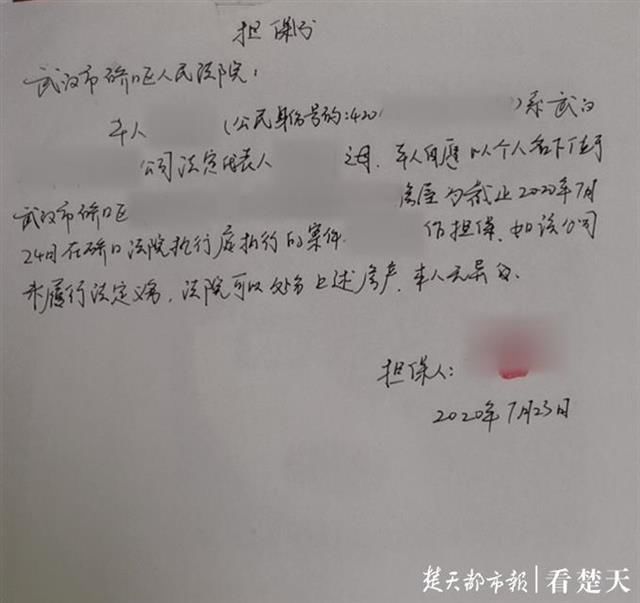 担保书
武汉市硚口区人民法院：
本人 (公民身份号码:420 )系武汉
公司法定代表人 之母，本人自愿以个人名下位于
武汉市硚口区 房屋为截止2020年7月
24日在硚口法院执行庭执行的案件 作担保，如该公司
未履行法定义务，法院可以处分上述房产，本人无异议。
担保人：
2020年7月23日
楚天都市报|看楚天